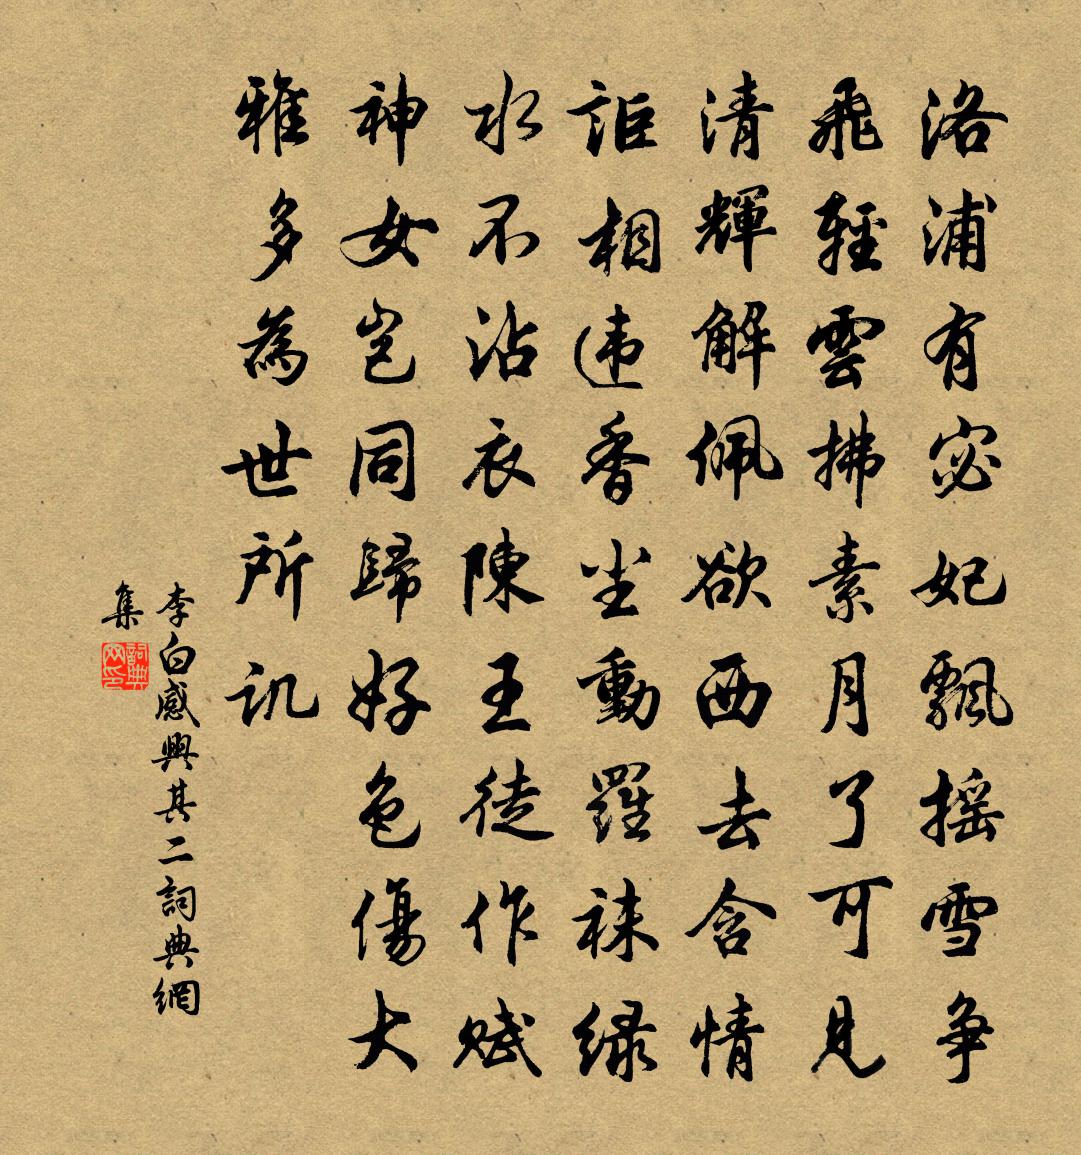 洛浦有宓妃飄摇雪争
飛輕雲拂素月了可見
清輝解佩欲西去含情
詎相违香尘動羅袜绿
水不沾衣陳王徒作赋
神女岂同歸好色傷大
雅多為世所讥
李白感興其二詞典網
集
詞典
网印